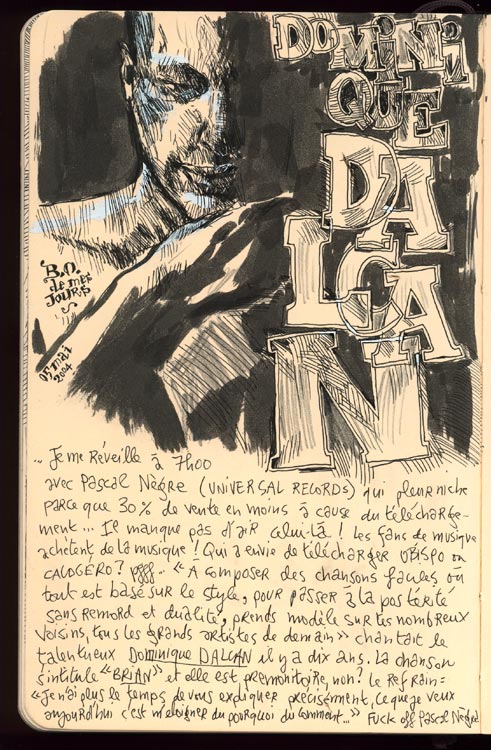 DOMINI
QUE
DAL
CAN
B.O.
de mes
JOURS
05 mai
2004
... Je me Réveille à 7h00
avec Pascal Nègre (UNIVERSAL RECORDS) qui pleurniche
parce que 30% de vente en moins à cause du télécharge-
ment... Il manque pas d'air celui-là ! Les fans de musique
achètent de la musique ! Qui a envie de télécharger OBISPO ou
CALOGERO ? pfff... "À composer des chansons faciles où
tout est basé sur le style, pour passer à la postérité
sans remord et dualité, prends modèle sur tes nombreux
voisins, tous les grands artistes de demain" chantait le
talentueux Dominique DALCAN il y a dix ans. La chanson
s'intitule "BRIAN" et elle est prémonitoire, non ? Le Refrain =
"Je n'ai plus le temps de vous expliquer précisément, ce que je veux
aujourd'hui c'est m'éloigner du pourquoi du comment..." Fuck off Pascal Nègre